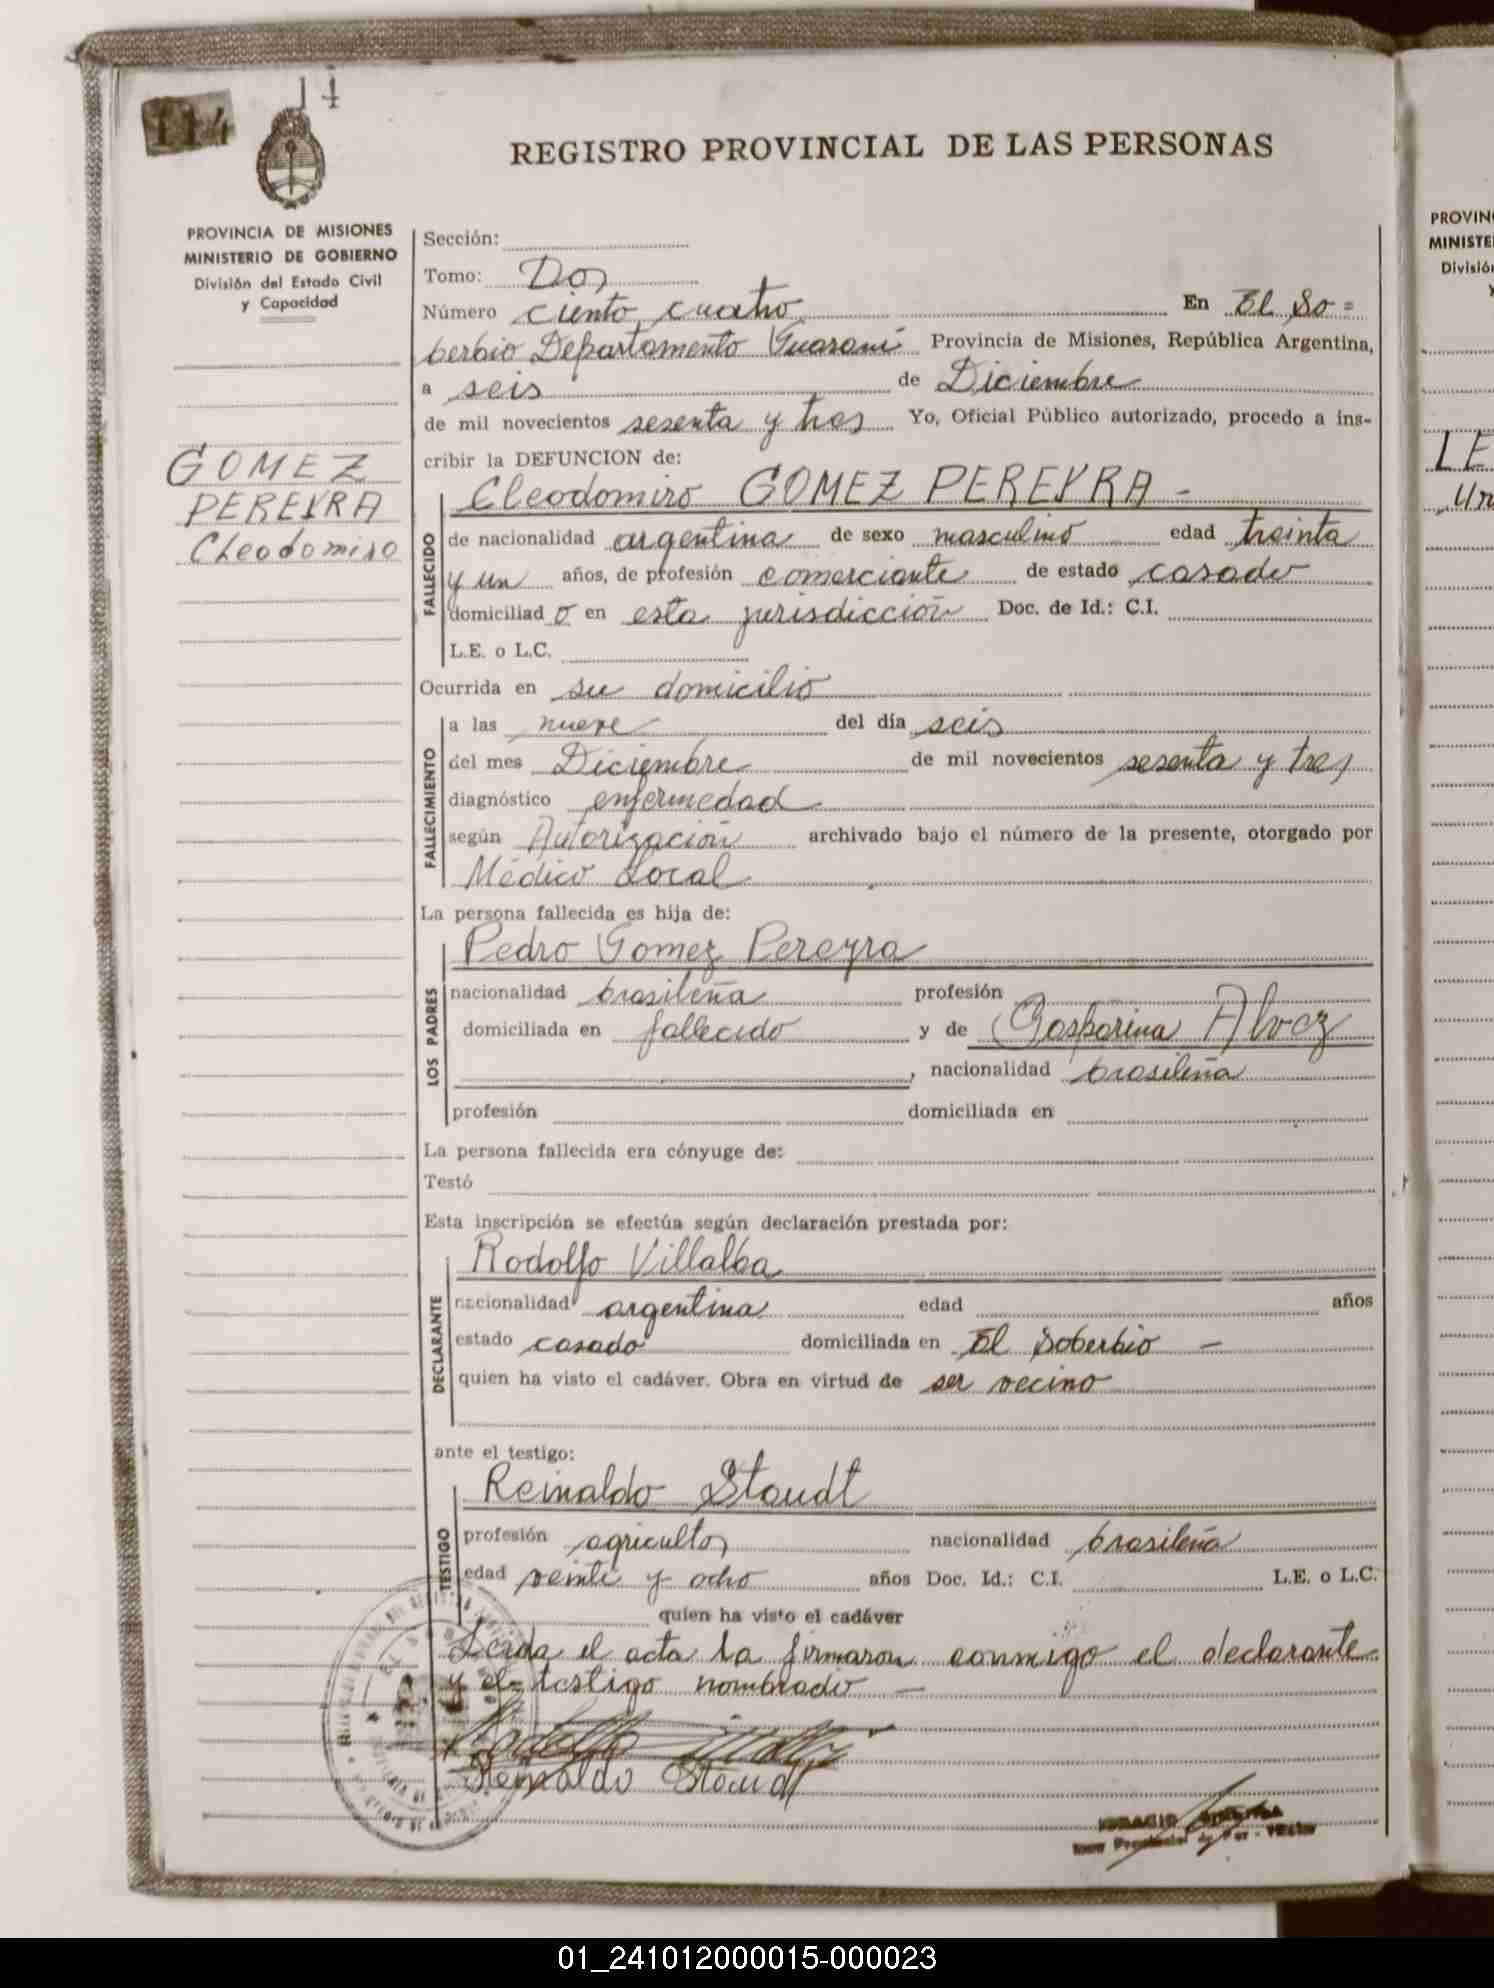 14
114
REGISTRO PROVINCIAL DE LAS PERSONAS
PROVINCIA DE MISIONES
MINISTERIO DE GOBIERNO
División del Estado Civil
y Capacidad
GOMEZ
PEREYRA
Cleodomiro
Sección:
Tomo: Dos
Número ciento cuatro En El So=
berbio Departamento Guaraní Provincia de Misiones, República Argentina,
a seis de Diciembre
de mil novecientos sesenta y tres Yo, Oficial Público autorizado, procedo a ins-
cribir la DEFUNCION de:
Cleodomiro GOMEZ PEREYRA -
FALLECIDO
de nacionalidad argentina de sexo masculino edad treinta
y un años, de profesión comerciante de estado casado
domiciliad o en esta jurisdicción Doc. de Id.: C.I.
L.E. o L.C.
Ocurrida en su domicilio
FALLECIMIENTO
a las nueve del día seis
del mes Diciembre de mil novecientos sesenta y tres
diagnóstico enfermedad
según Autorización archivado bajo el número de la presente, otorgado por
Médico Local
La persona fallecida es hija de:
LOS PADRES
Pedro Gomez Pereyra
nacionalidad brasileña profesión
domiciliada en fallecido y de Gasparina Alvez
, nacionalidad brasileña
profesión domiciliada en
La persona fallecida era cónyuge de:
Testó
Esta inscripción se efectúa según declaración prestada por:
DECLARANTE
Rodolfo Villalba
nacionalidad argentina edad años
estado casado domiciliada en El Soberbio -
quien ha visto el cadáver. Obra en virtud de ser vecino
ante el testigo:
TESTIGO
Reinaldo Staudt
profesión agricultor nacionalidad brasileña
edad veinte y ocho años Doc. Id.: C.I. L.E. o L.C.
quien ha visto el cadáver
Leida el acta la firmaron conmigo el declarante
y el testigo nombrado -
Reinaldo Staudt
HORACIO
PROVIN
MINISTE
Divisió
y
LE
01_241012000015-000023